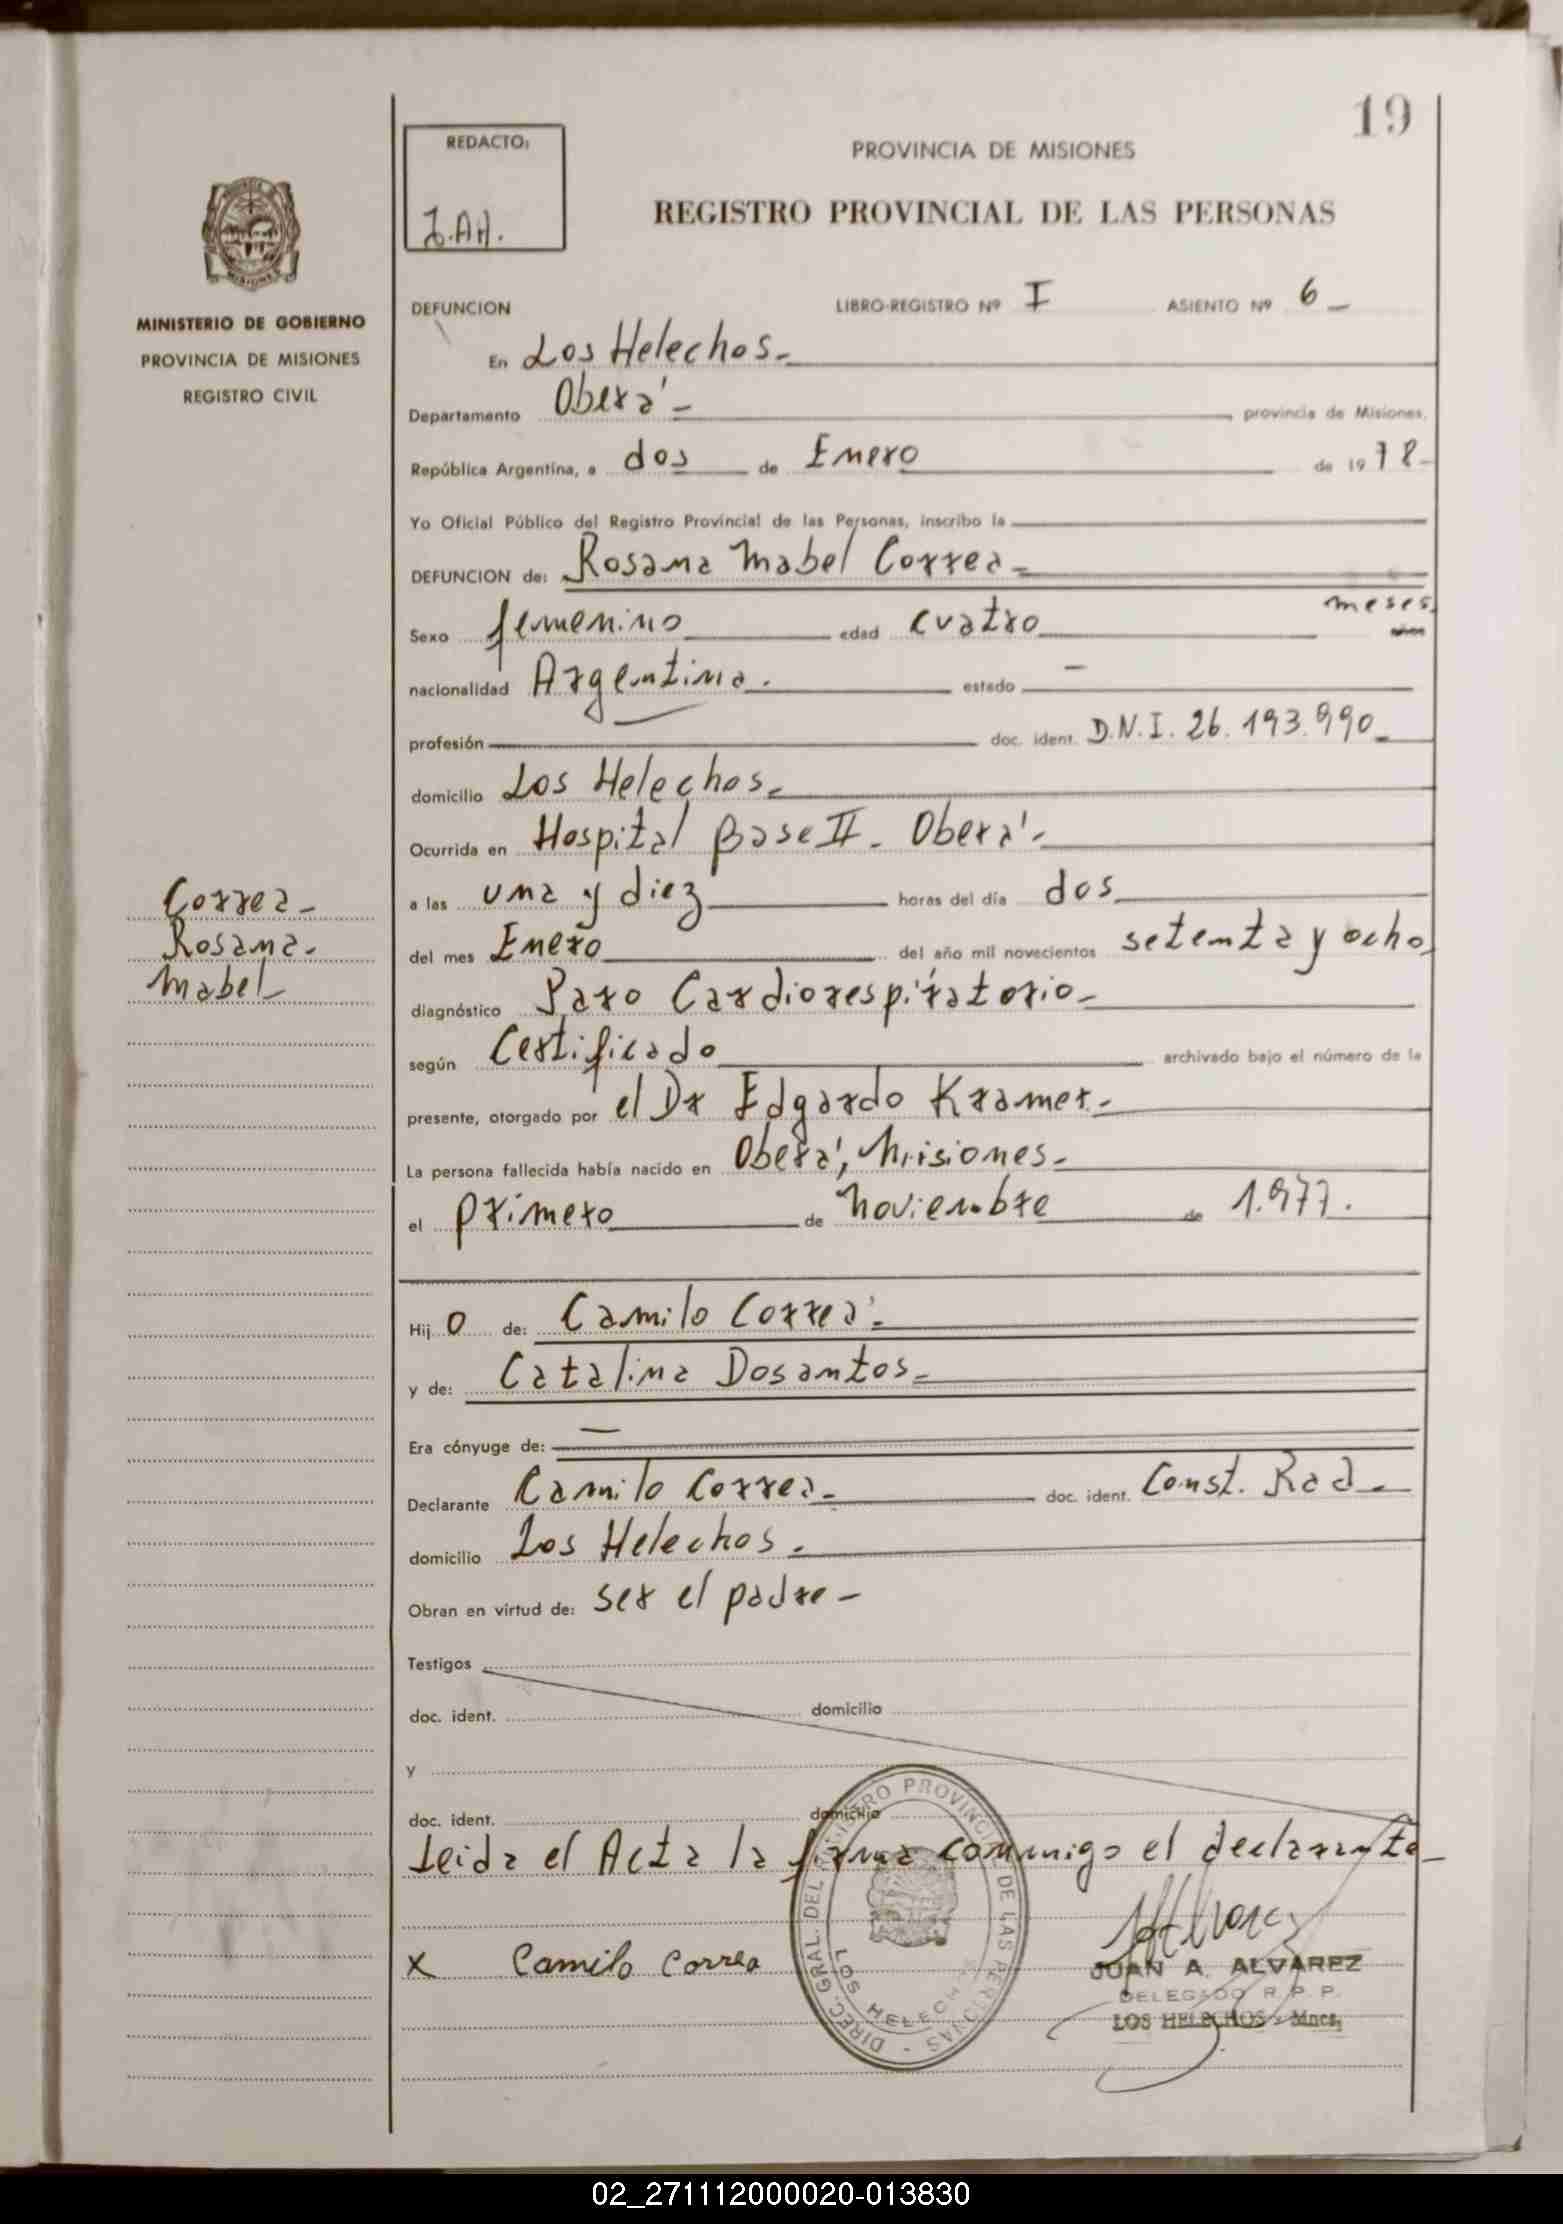 19
REDACTO:
J.AA.
PROVINCIA DE MISIONES
REGISTRO PROVINCIAL DE LAS PERSONAS
MINISTERIO DE GOBIERNO
PROVINCIA DE MISIONES
REGISTRO CIVIL
DEFUNCION LIBRO-REGISTRO Nº I ASIENTO Nº 6
En Los Helechos.
Departamento Oberá provincia de Misiones.
República Argentina, a dos de Enero de 1978
Yo Oficial Público del Registro Provincial de las Personas, inscribo la
DEFUNCION de: Rosana Mabel Correa
Sexo femenino edad cuatro meses
nacionalidad Argentina. estado -
profesión doc. ident. D.N.I. 26.193.990
domicilio Los Helechos.
Ocurrida en Hospital Base II - Oberá
a las una y diez horas del día dos
Correa
Rosana.
Mabel
del mes Enero del año mil novecientos setenta y ocho
diagnóstico Paro Cardiorespiratorio
según Certificado archivado bajo el número de la
presente, otorgado por el Dr Edgardo Kramer.
La persona fallecida había nacido en Oberá, Misiones.
el primero de Noviembre de 1.977.
Hijo de: Camilo Correa
y de: Catalina Dosantos
Era cónyuge de: -
Declarante Camilo Correa doc. ident. Const. Rad
domicilio Los Helechos.
Obran en virtud de: ser el padre
Testigos
doc. ident. domicilio
y
doc. ident. domicilio
Leida el Acta la firma conmigo el declarante
x Camilo Correa
DIREC. GRAL. DEL REGISTRO PROVINCIAL DE LAS PERSONAS -
LOS HELECHOS
JUAN A. ALVAREZ
DELEGADO R. P. P.
LOS HELECHOS - Mnes.
02_271112000020-013830